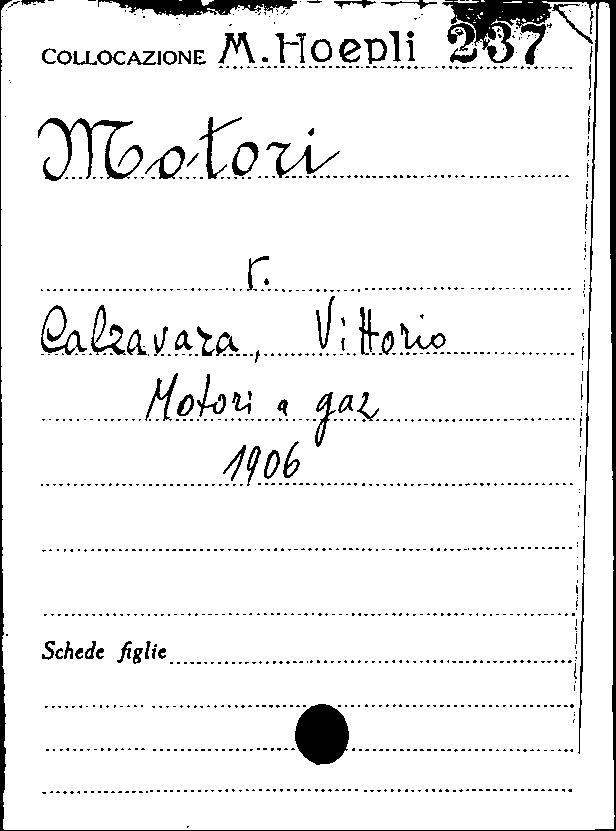 COLLOCAZIONE M. Hoepli 237
Motori
r.
Calzavara, Vittorio
Motori a gaz
1906
Schede figlie